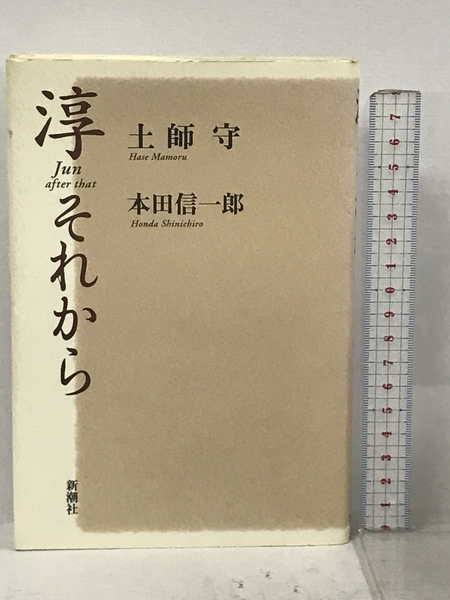 淳
Jun
after that
それから
土師 守
Hase Mamoru
本田信一郎
Honda Shinichiro
新潮社
7
6
5
4
3
2
1
0
9
8
7
6
5
4
3
2
1